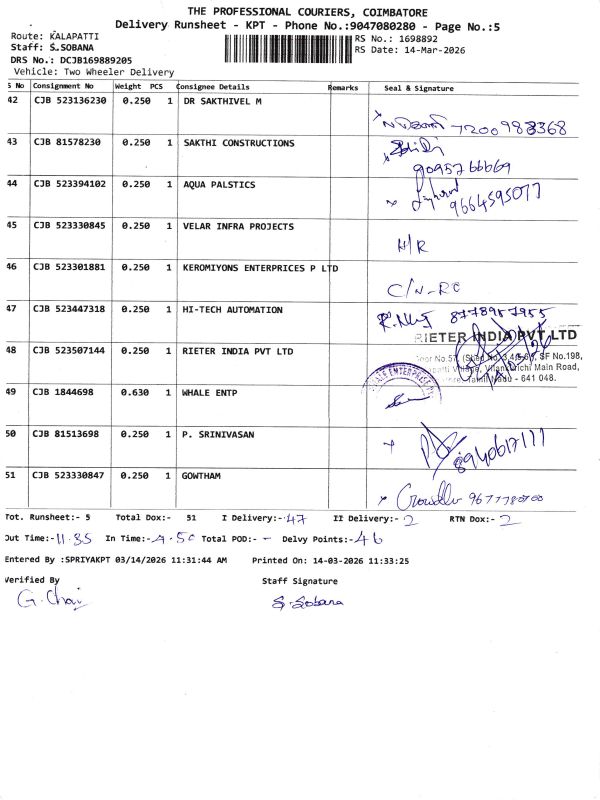 THE PROFESSIONAL COURIERS, COIMBATORE
Delivery Runsheet - KPT - Phone No.:9047080280 - Page No.:5
Route: KALAPATTI
RS No.: 1698892
Staff: S.SOBANA
RS Date: 14-Mar-2026
DRS No.: DCJB169889205
Vehicle: Two Wheeler Delivery
S No Consignment No Weight PCS Consignee Details Remarks Seal & Signature
42 CJB 523136230 0.250 1 DR SAKTHIVEL M
7200983368
43 CJB 81578230 0.250 1 SAKTHI CONSTRUCTIONS
9095766669
44 CJB 523394102 0.250 1 AQUA PALSTICS
9664595077
45 CJB 523330845 0.250 1 VELAR INFRA PROJECTS
N/R
46 CJB 523301881 0.250 1 KEROMIYONS ENTERPRICES P LTD
C/N-RC
47 CJB 523447318 0.250 1 HI-TECH AUTOMATION
8778957955
RIETER INDIA PVT LTD
48 CJB 523507144 0.250 1 RIETER INDIA PVT LTD
SF No.198,
Main Road,
641 048.
49 CJB 1844698 0.630 1 WHALE ENTP
50 CJB 81513698 0.250 1 P. SRINIVASAN
51 CJB 523330847 0.250 1 GOWTHAM
Tot. Runsheet:- 5 Total Dox:- 51 I Delivery:-47 II Delivery:-2 RTN Dox:-2
Out Time:-11.35 In Time:-4.50 Total POD:-- Delvy Points:-46
Entered By :SPRIYAKPT 03/14/2026 11:31:44 AM Printed On: 14-03-2026 11:33:25
Verified By Staff Signature
G. S.Sobana